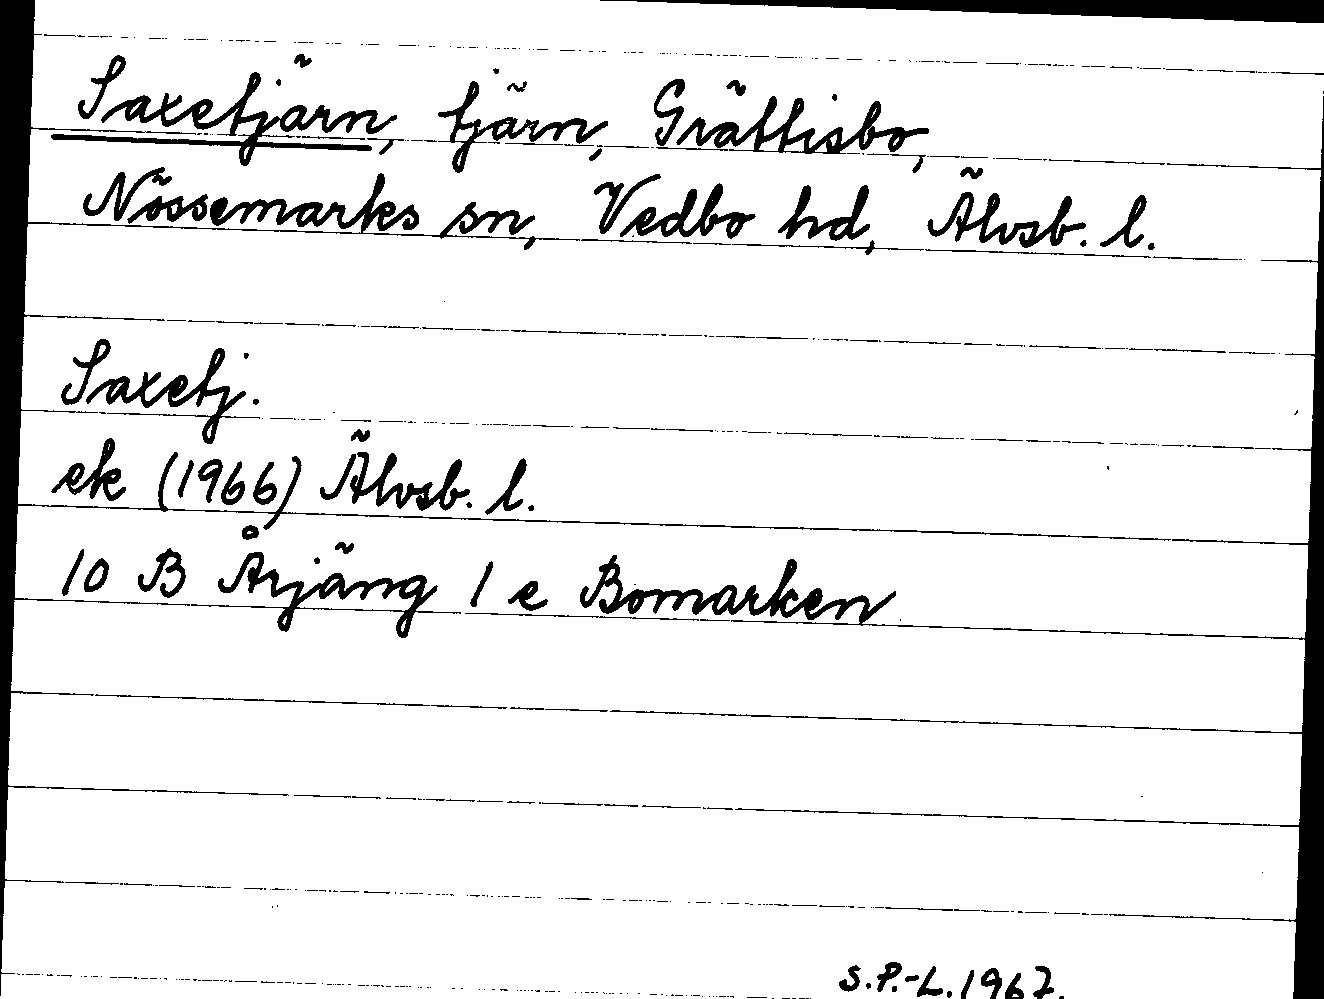 Saxetjärn, tjärn, Grättisbo,
Nössemarks sn, Vedbo hd, Älvsb. l.
Saxetj.
ek (1966) Älvsb. l.
10 B Årjäng 1 e Bomarken
S.P.-L. 1967.